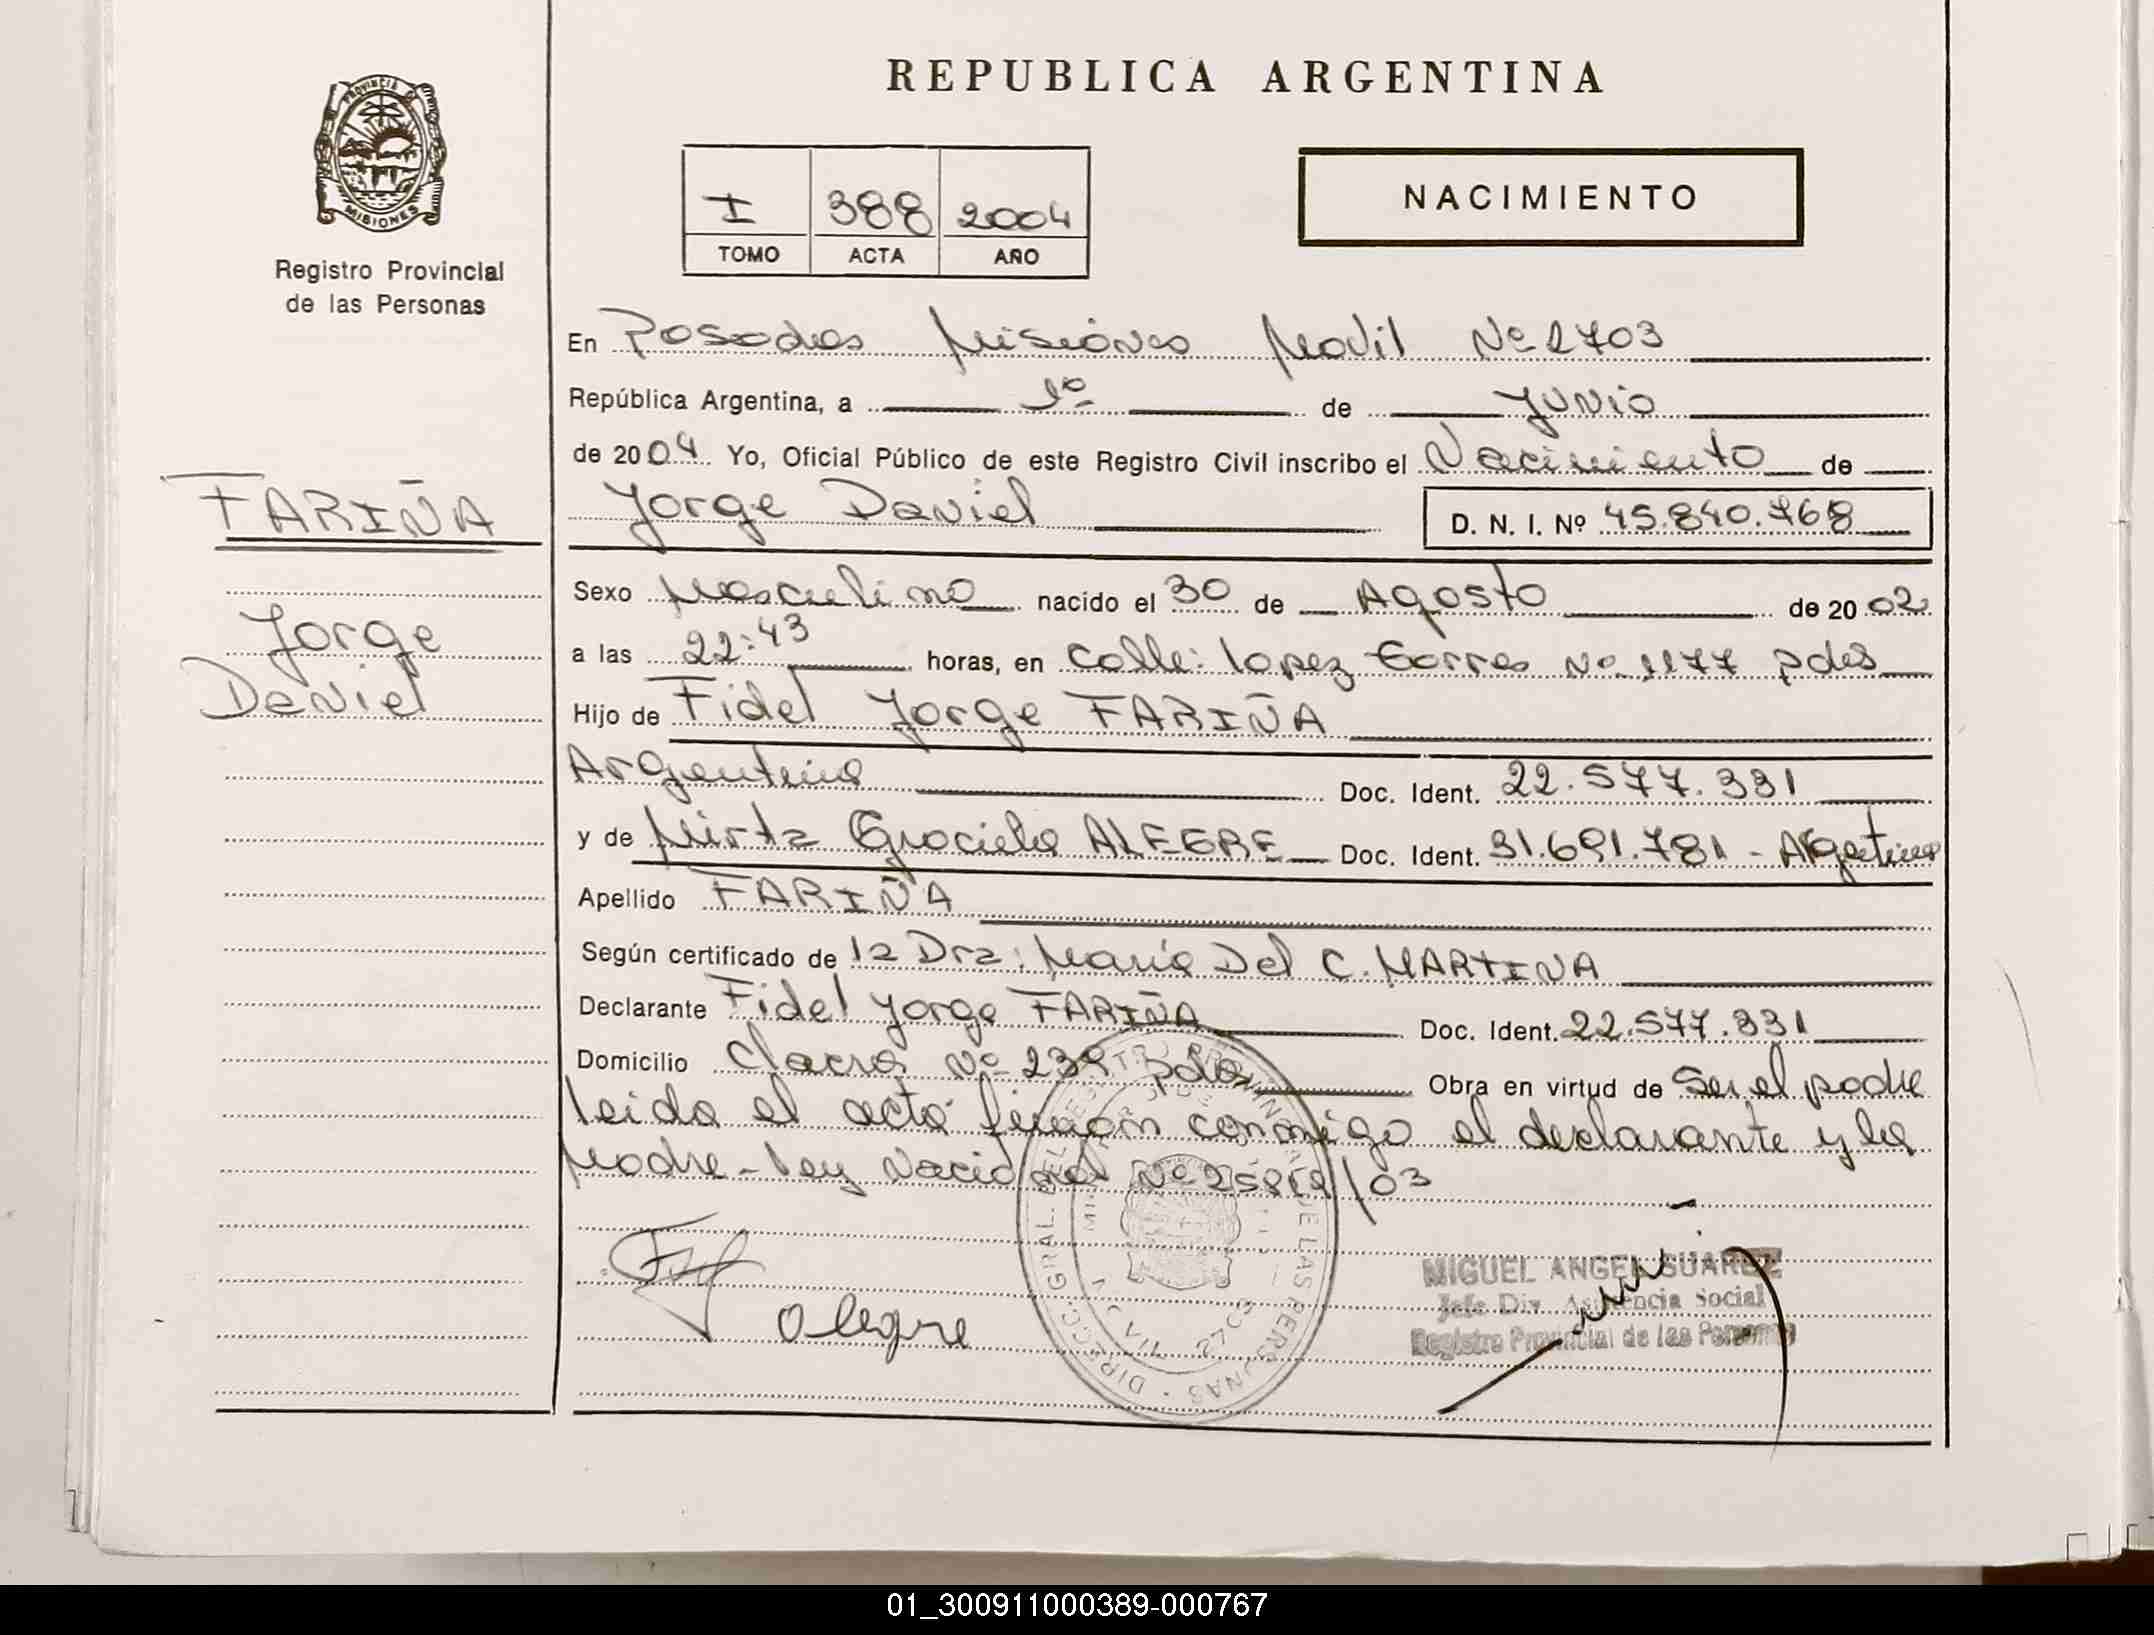 REPUBLICA ARGENTINA
PROVINCIA DE
MISIONES
Registro Provincial
de las Personas
I 388 2004
TOMO ACTA AÑO
NACIMIENTO
En Posadas Misiones Movil Nº 2703
República Argentina, a 1º de Junio
de 2004 Yo, Oficial Público de este Registro Civil inscribo el Nacimiento de
FARIÑA
Jorge Daniel D. N. I. Nº 45.840.768
Sexo Masculino nacido el 30 de Agosto de 2002
Jorge
Daniel
a las 22:43 horas, en Calle: Lopez Torres Nº 1177 pdas
Hijo de Fidel Jorge FARIÑA
Argentino Doc. Ident. 22.577.331
y de Mirta Graciela ALEGRE Doc. Ident. 31.691.781 - Argentina
Apellido FARIÑA
Según certificado de la Dra: María Del C. MARTINA
Declarante Fidel Jorge FARIÑA Doc. Ident. 22.577.331
Domicilio Chacra Nº 239 pdas Obra en virtud de Ser el padre
leida el acta firman conmigo el declarante y la
Madre - Ley Nacional Nº 25819/03
Alegre
MIGUEL ANGEL SUAREZ
Jefe Div. Asistencia Social
Registro Provincial de las Personas
DIRECC. GRAL. DEL REGISTRO PROVINCIAL DE LAS PERSONAS
01_300911000389-000767